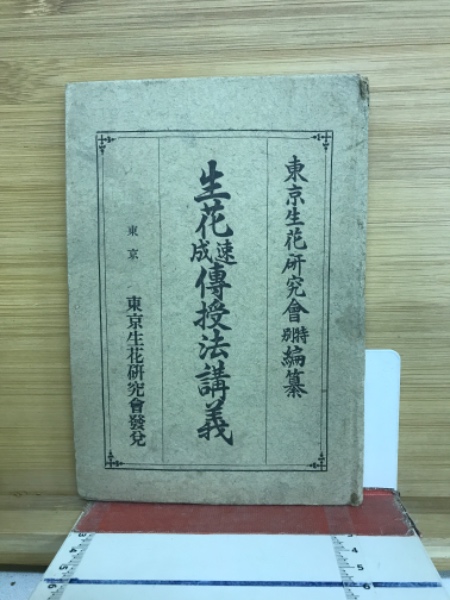 東京生花研究會特別編纂
生花速成傳授法講義
東京 東京生花研究會發兌